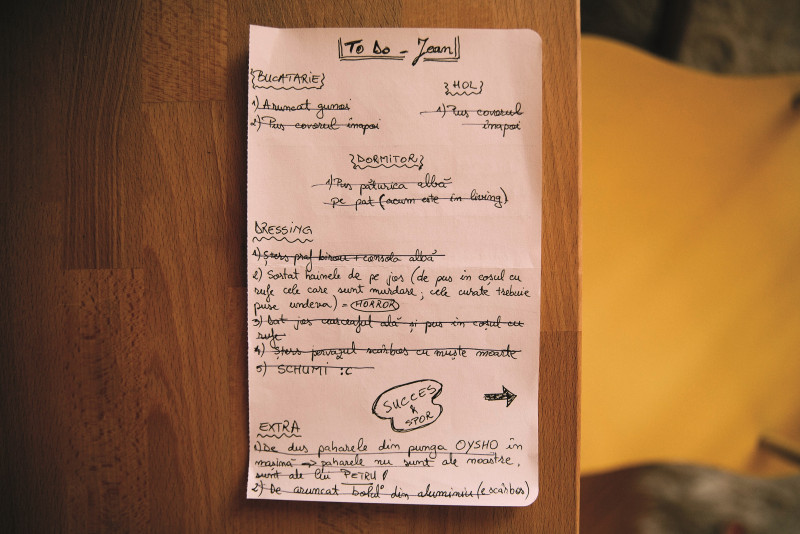 To Do - Jean
BUCATARIE
1) Aruncat gunoi
2) Pus covorul inapoi
HOL
1) Pus covorul
inapoi
DORMITOR
1) Pus păturica albă
pe pat (acum este in living)
DRESSING
1) Șters praf birou + consola albă
2) Sortat hainele de pe jos (de pus in coșul cu
rufe cele care sunt murdare; cele curate trebuie
puse undeva) = HORROR
3) Dat jos cearceaful ală și pus in coșul cu
rufe
4) Șters pervazul scârbos cu muște moarte
5) SCHUMI :c
SUCCES
&
SPOR
EXTRA
1) De dus paharele din punga OYSHO in
masină → paharele nu sunt ale noastre,
sunt ale lui PETRU!
2) De aruncat bold din aluminiu (e scârbos)